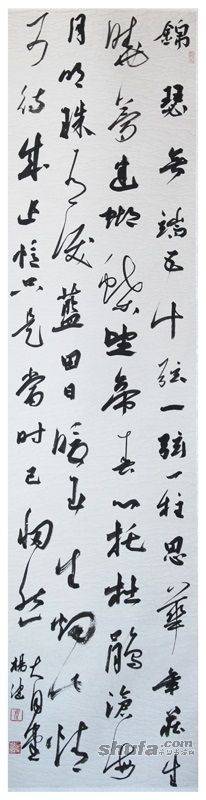 錦瑟無端五十弦一弦一柱思華年莊生
曉夢迷蝴蝶望帝春心托杜鵑滄海
月明珠有淚藍田日暖玉生烟此情
可待成追憶只是當時已惘然
shufa.com